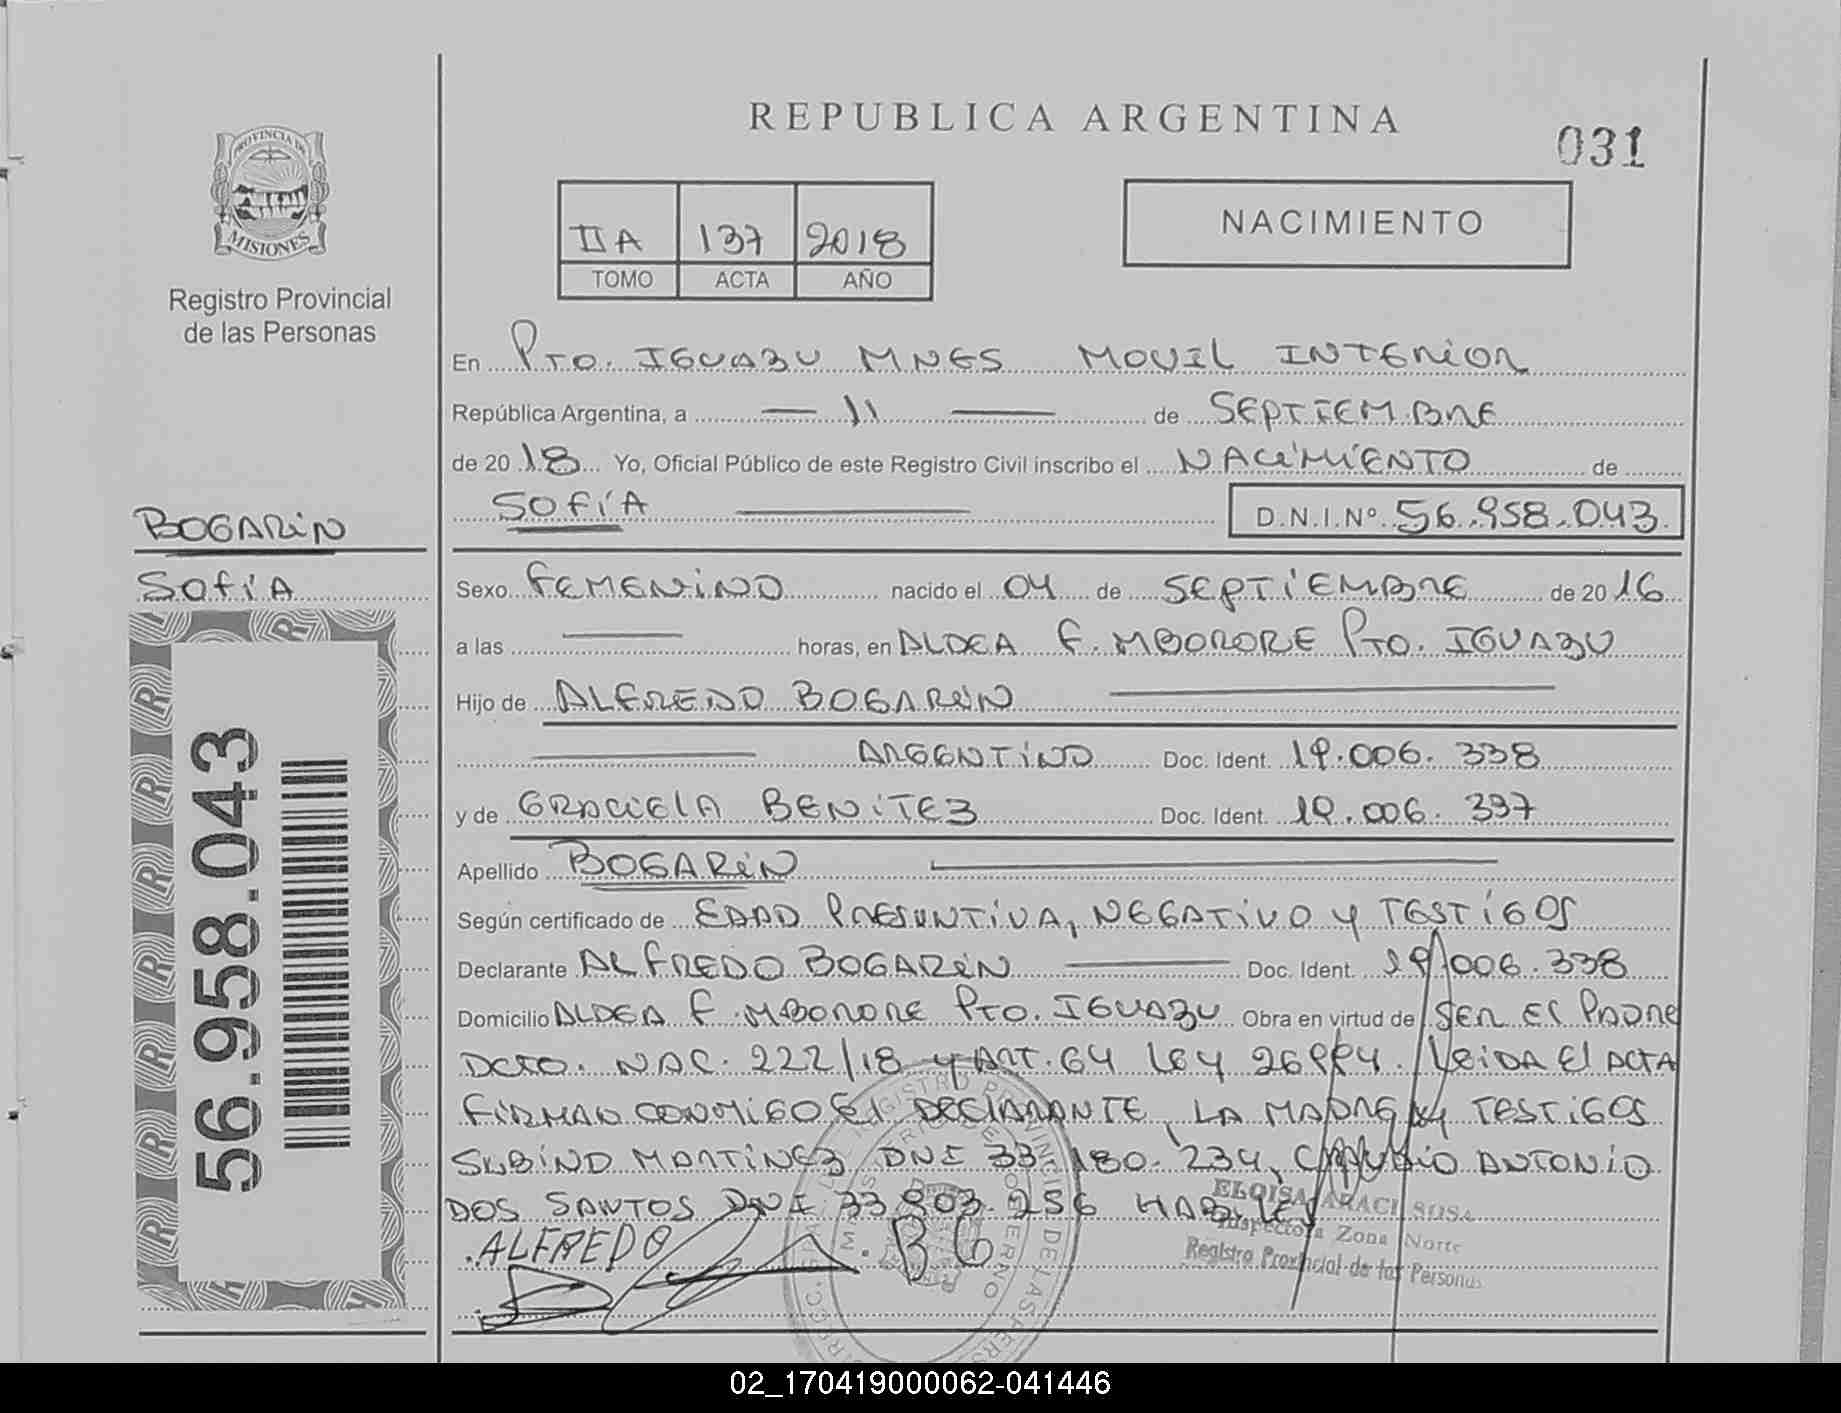 REPUBLICA ARGENTINA
031
PROVINCIA DE
MISIONES
Registro Provincial
de las Personas
IIA 137 2018
TOMO ACTA AÑO
NACIMIENTO
En PTO. IGUAZU MNES MOVIL INTERIOR
República Argentina, a 11 de SEPTIEMBRE
de 20 18 Yo, Oficial Público de este Registro Civil inscribo el NACIMIENTO de
SOFÍA D.N.I.Nº 56.958.043
BOGARIN
SOFIA
56.958.043
Sexo FEMENINO nacido el 04 de SEPTIEMBRE de 20 16
a las horas, en ALDEA F. MBORORE PTO. IGUAZU
Hijo de ALFREDO BOGARIN
ARGENTINO Doc. Ident. 19.006.338
y de GRACIELA BENITEZ Doc. Ident. 19.006.397
Apellido BOGARIN
Según certificado de EDAD PRESUNTIVA, NEGATIVO Y TESTIGOS
Declarante ALFREDO BOGARIN Doc. Ident. 19.006.338
Domicilio ALDEA F. MBORORE PTO. IGUAZU Obra en virtud de SER EL PADRE
DCTO. NAC. 222/18 Y ART. 64 LEY 26994. LEIDA EL ACTA
FIRMAN CONMIGO EL DECLARANTE, LA MADRE Y TESTIGOS
MARTINEZ DNI 33.180.234, CLAUDIO ANTONIO
DOS SANTOS DNI 33.903.256 HABILES
ELOISA ARACI SOSA
Inspectora Zona Norte
Registro Provincial de las Personas
ALFREDO . B G
02_170419000062-041446